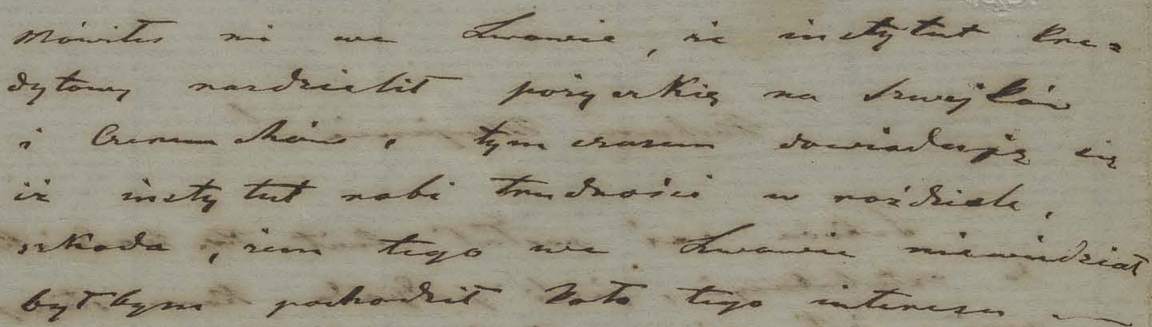 Mówiłeś mi we Lwowie, że instytut kre=
dytowy rozdzielił pożyczkię na Szwejków
i , tym czasem dowiaduję się
iż instytut robi trudności w roździele,
szkoda, żem tego we Lwowie niewiedział
byłbym pochodził koło tego interesu —